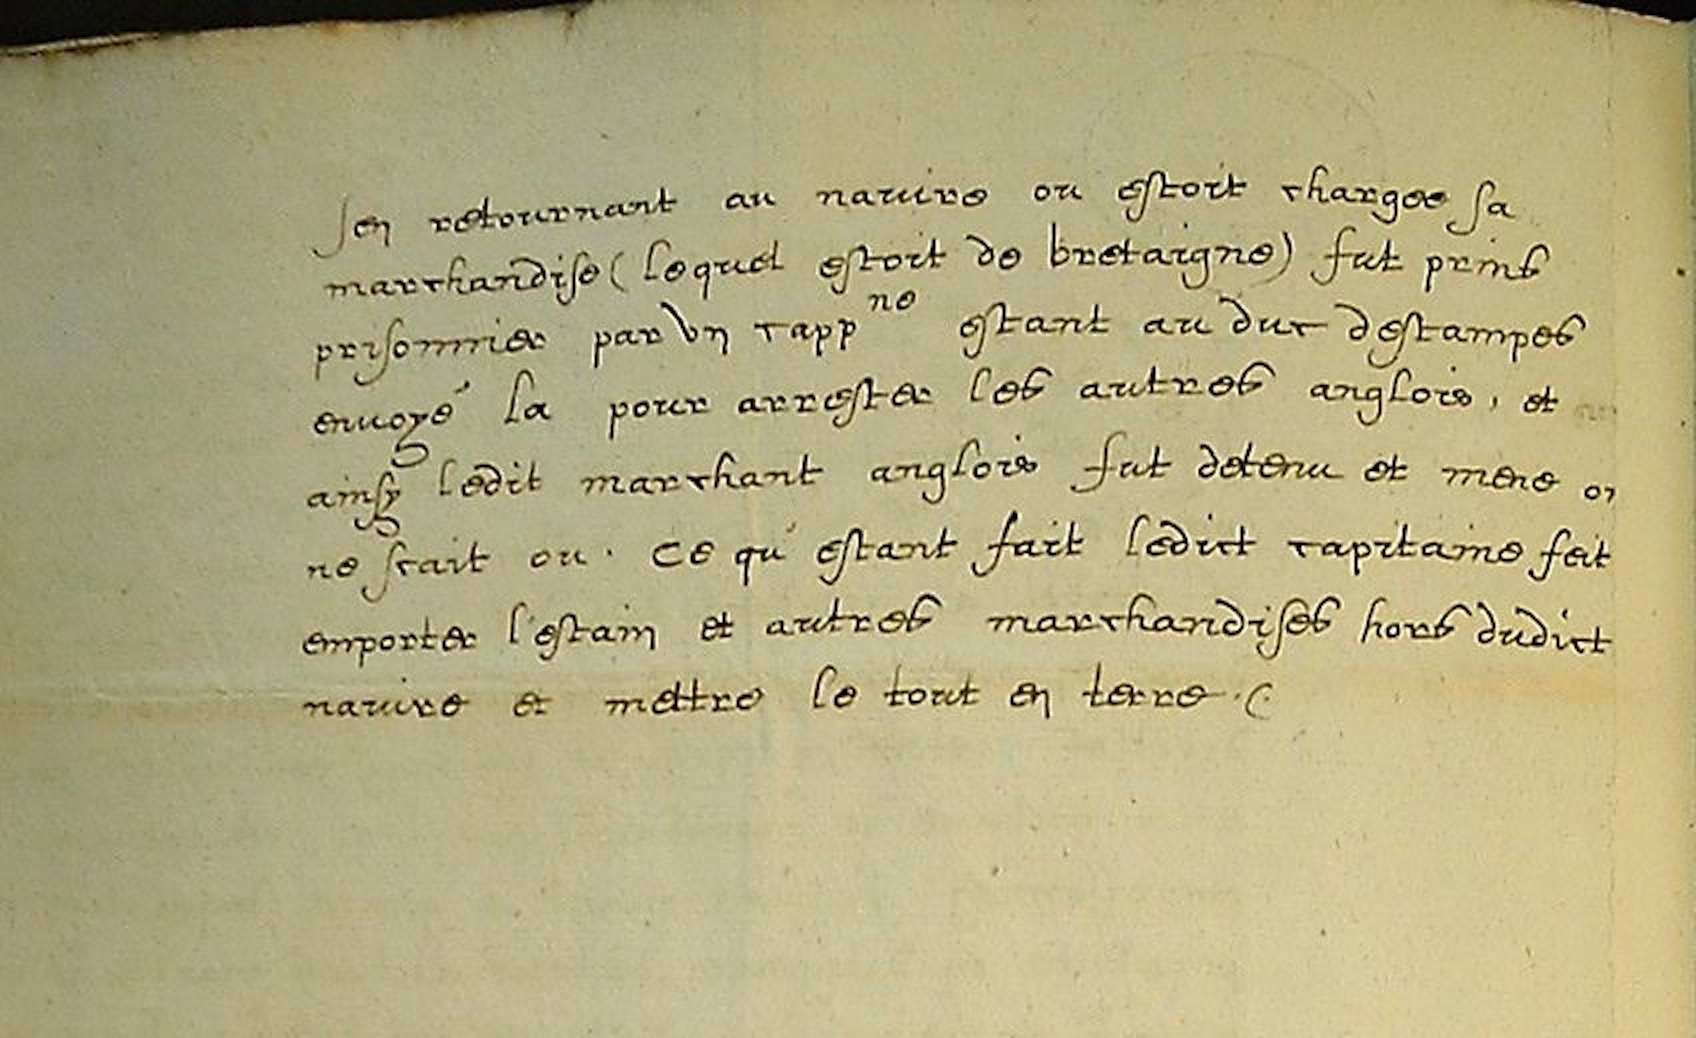 sen retournant au navire ou estoit chargee sa
marchandise (lequel estoit de bretaigne) fut prins
prisonnier par vn capp^ne estant au duc destampes
envoyé la pour arrester les autres anglois, et
ainsy ledit marchant anglois fut detenu et mene on
ne scait ou. Ce qu' estant fait ledict capitaine feit
emporter l'estain et autres marchandises hors dudict
navire et mettre le tout en terre.